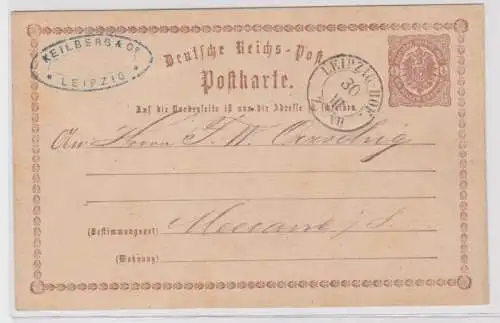 KEILBERG & Co
LEIPZIG
Deutsche Reichs-Post
Postkarte.
LEIPZIG-HOF
30
III
Auf die Vorderseite ist nur die Adresse zu schreiben.
An Herrn F. W.
(Bestimmungsort) Meerane i/S.
(Wohnung)